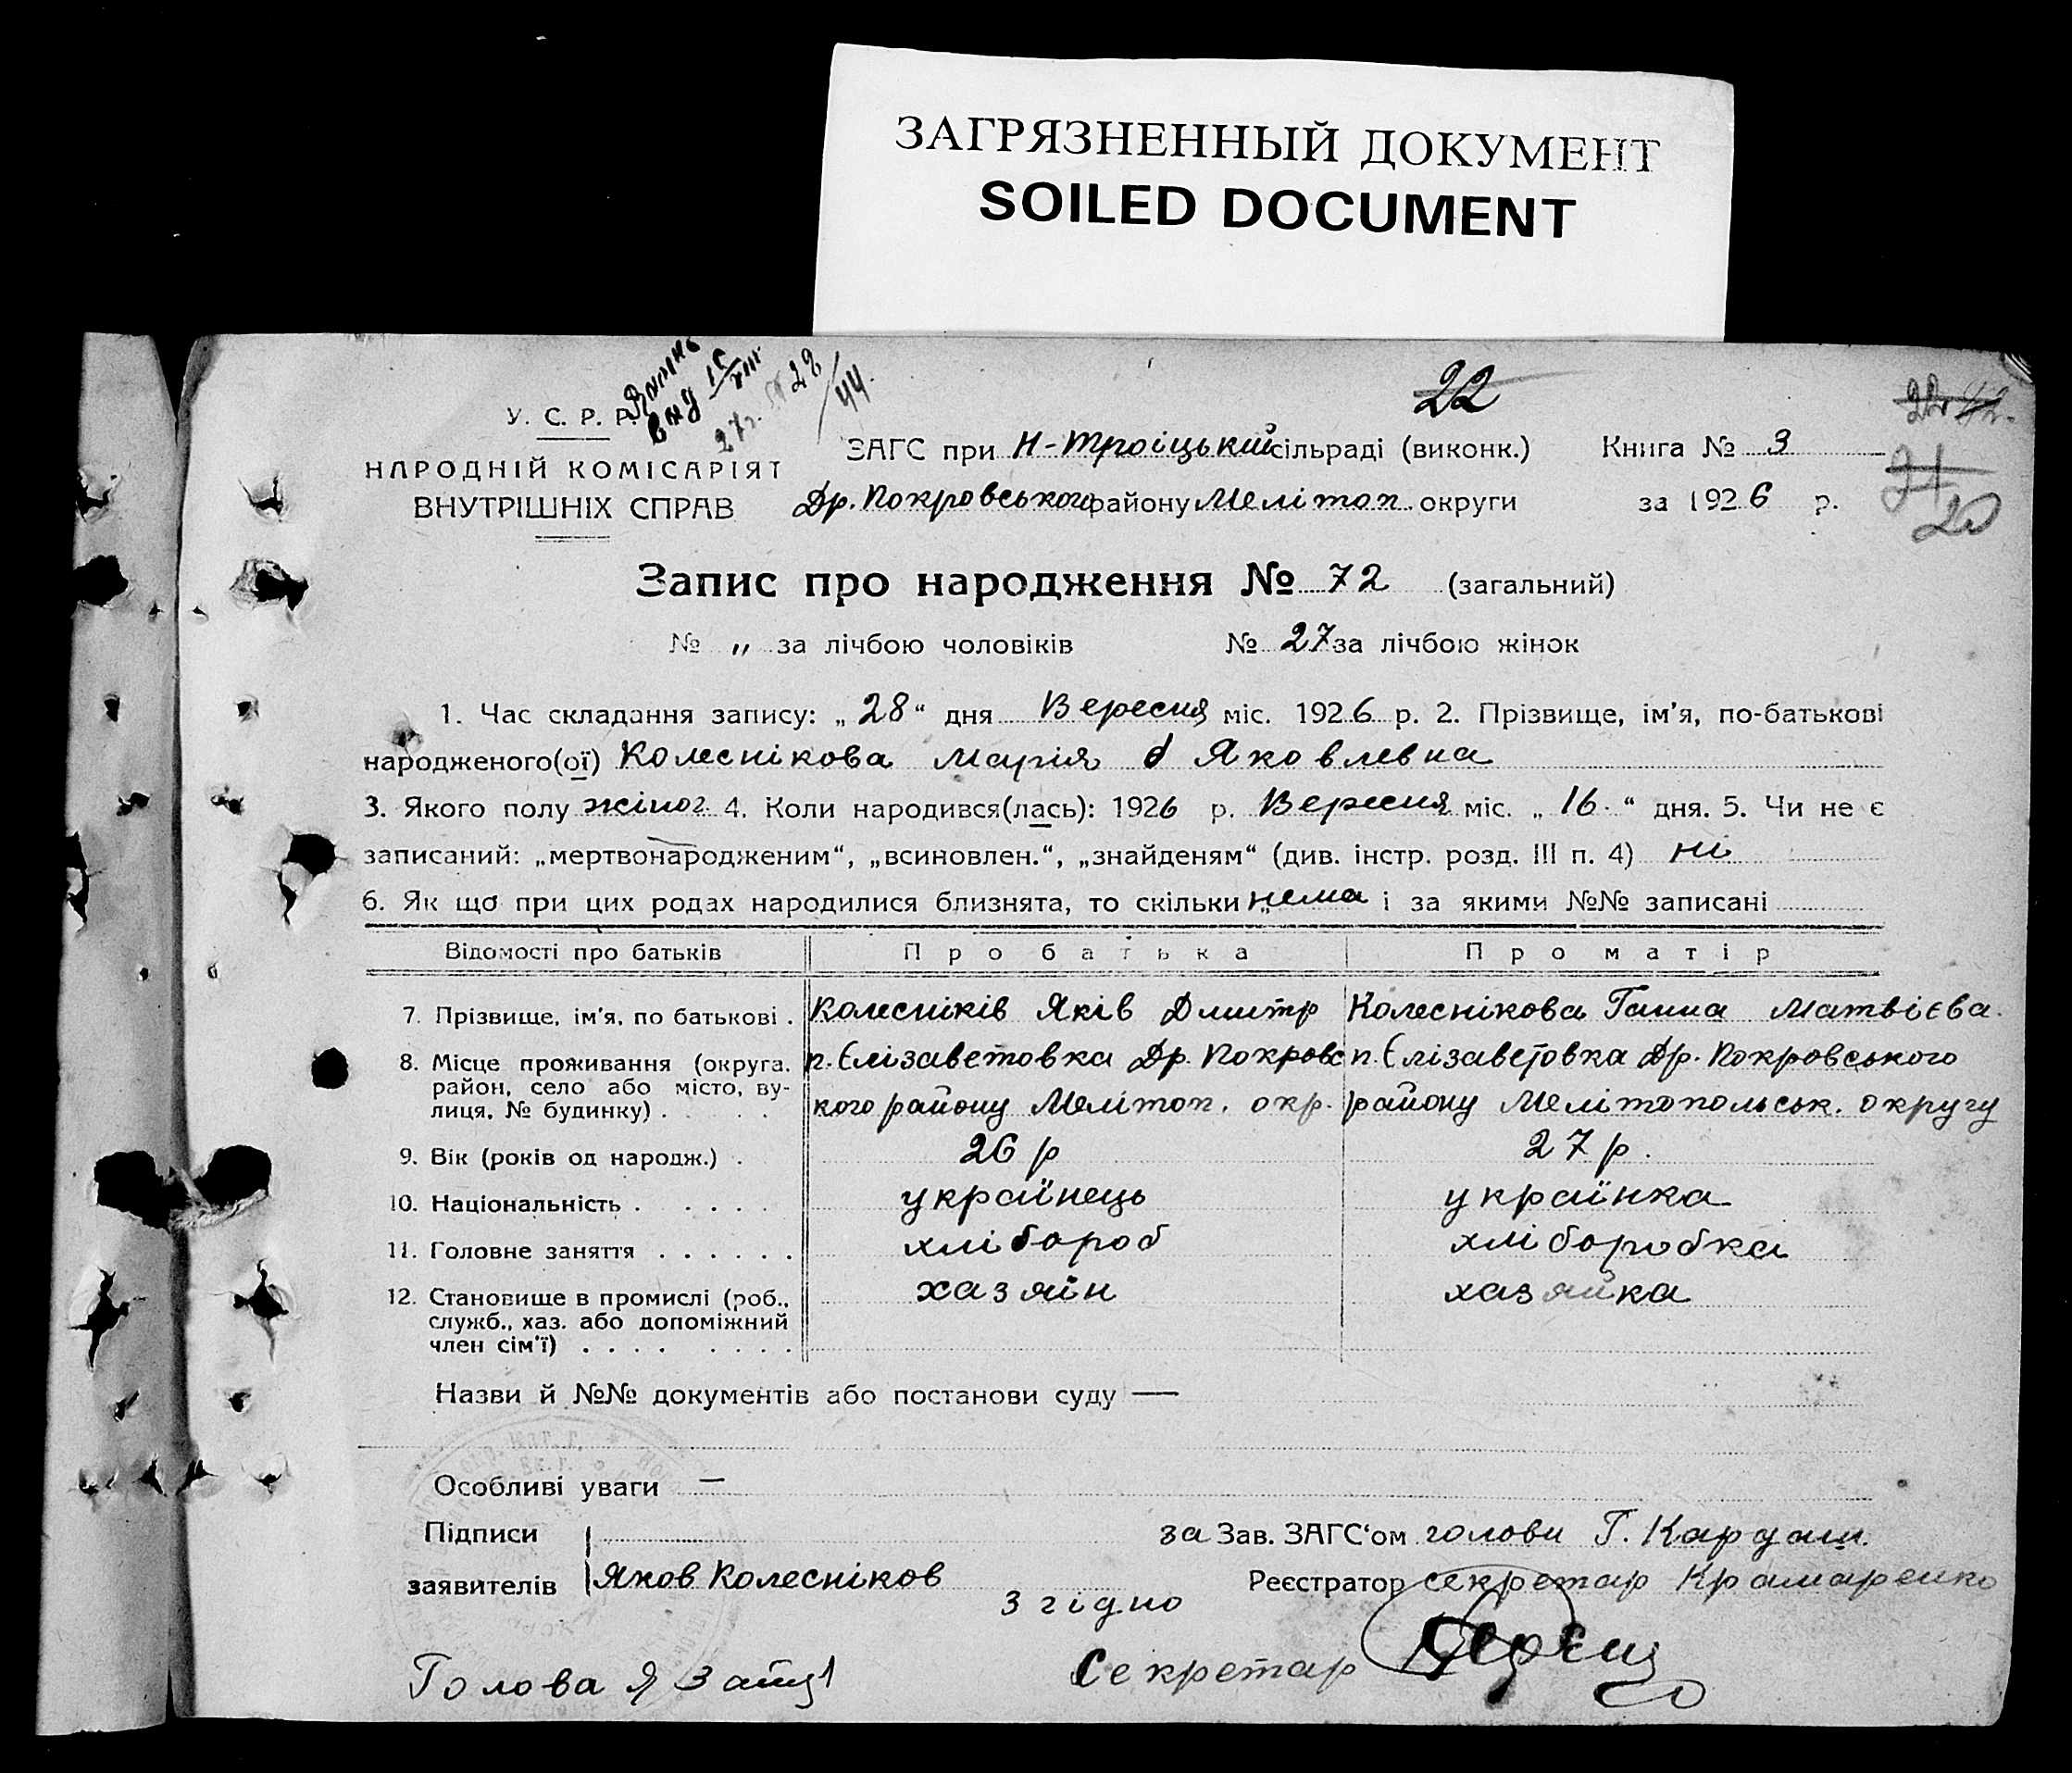 ЗАГРЯЗНЕННЫЙ ДОКУМЕНТ
SOILED DOCUMENT
22
У. С. Р. Р.
27г. № 28/44.
ЗАГС при Н-Троіцькій сільраді (виконк.) Книга № 3
НАРОДНІЙ КОМІСАРІЯТ
ВНУТРІШНІХ СПРАВ
Др. Покровського району Мелітоп. округи за 1926 р.
21
20
Запис про народження № 72 (загальний)
№ „ за лічбою чоловіків № 27 за лічбою жінок
1. Час складання запису: „28“ дня Вересня міс. 1926 р. 2. Прізвище, ім'я, по-батькові
народженого(ої) Колеснікова Марія Яковлевна
3. Якого полу жіноч 4. Коли народився(лась): 1926 р. Вересня міс. „16.“ дня. 5. Чи не є
записаний: „мертвонародженим“, „всиновлен.“, „знайденям“ (див. інстр. розд. III п. 4) ні
6. Як що при цих родах народилися близнята, то скільки нема і за якими №№ записані
Відомості про батьків Про батька Про матір
7. Прізвище, ім'я, по батькові . Колесніків Яків Дмитр Колеснікова Ганна Матвієва.
8. Місце проживання (округа, п. Єлізаветовка Др. Покровс п. Єлізаветовка Др. Покровського
район, село або місто, ву-
лиця, № будинку) . кого району Мелітоп. окр. району Мелітопольськ. округу
9. Вік (років од народж.) . 26 р 27 р.
10. Національність . . . . . українець українка
11. Головне заняття . . . . . . хлібороб хліборобка
12. Становище в промислі (роб., хазяїн хазяйка
служб., хаз. або допоміжний
член сім'ї) . . . . . . . .
Назви й №№ документів або постанови суду —
Особливі уваги —
Підписи за Зав. ЗАГС'ом голови Г. Кардаш.
заявителів Яков Колесніков Реєстратор секретар Крамаренко
Згідно
Голова Секретар